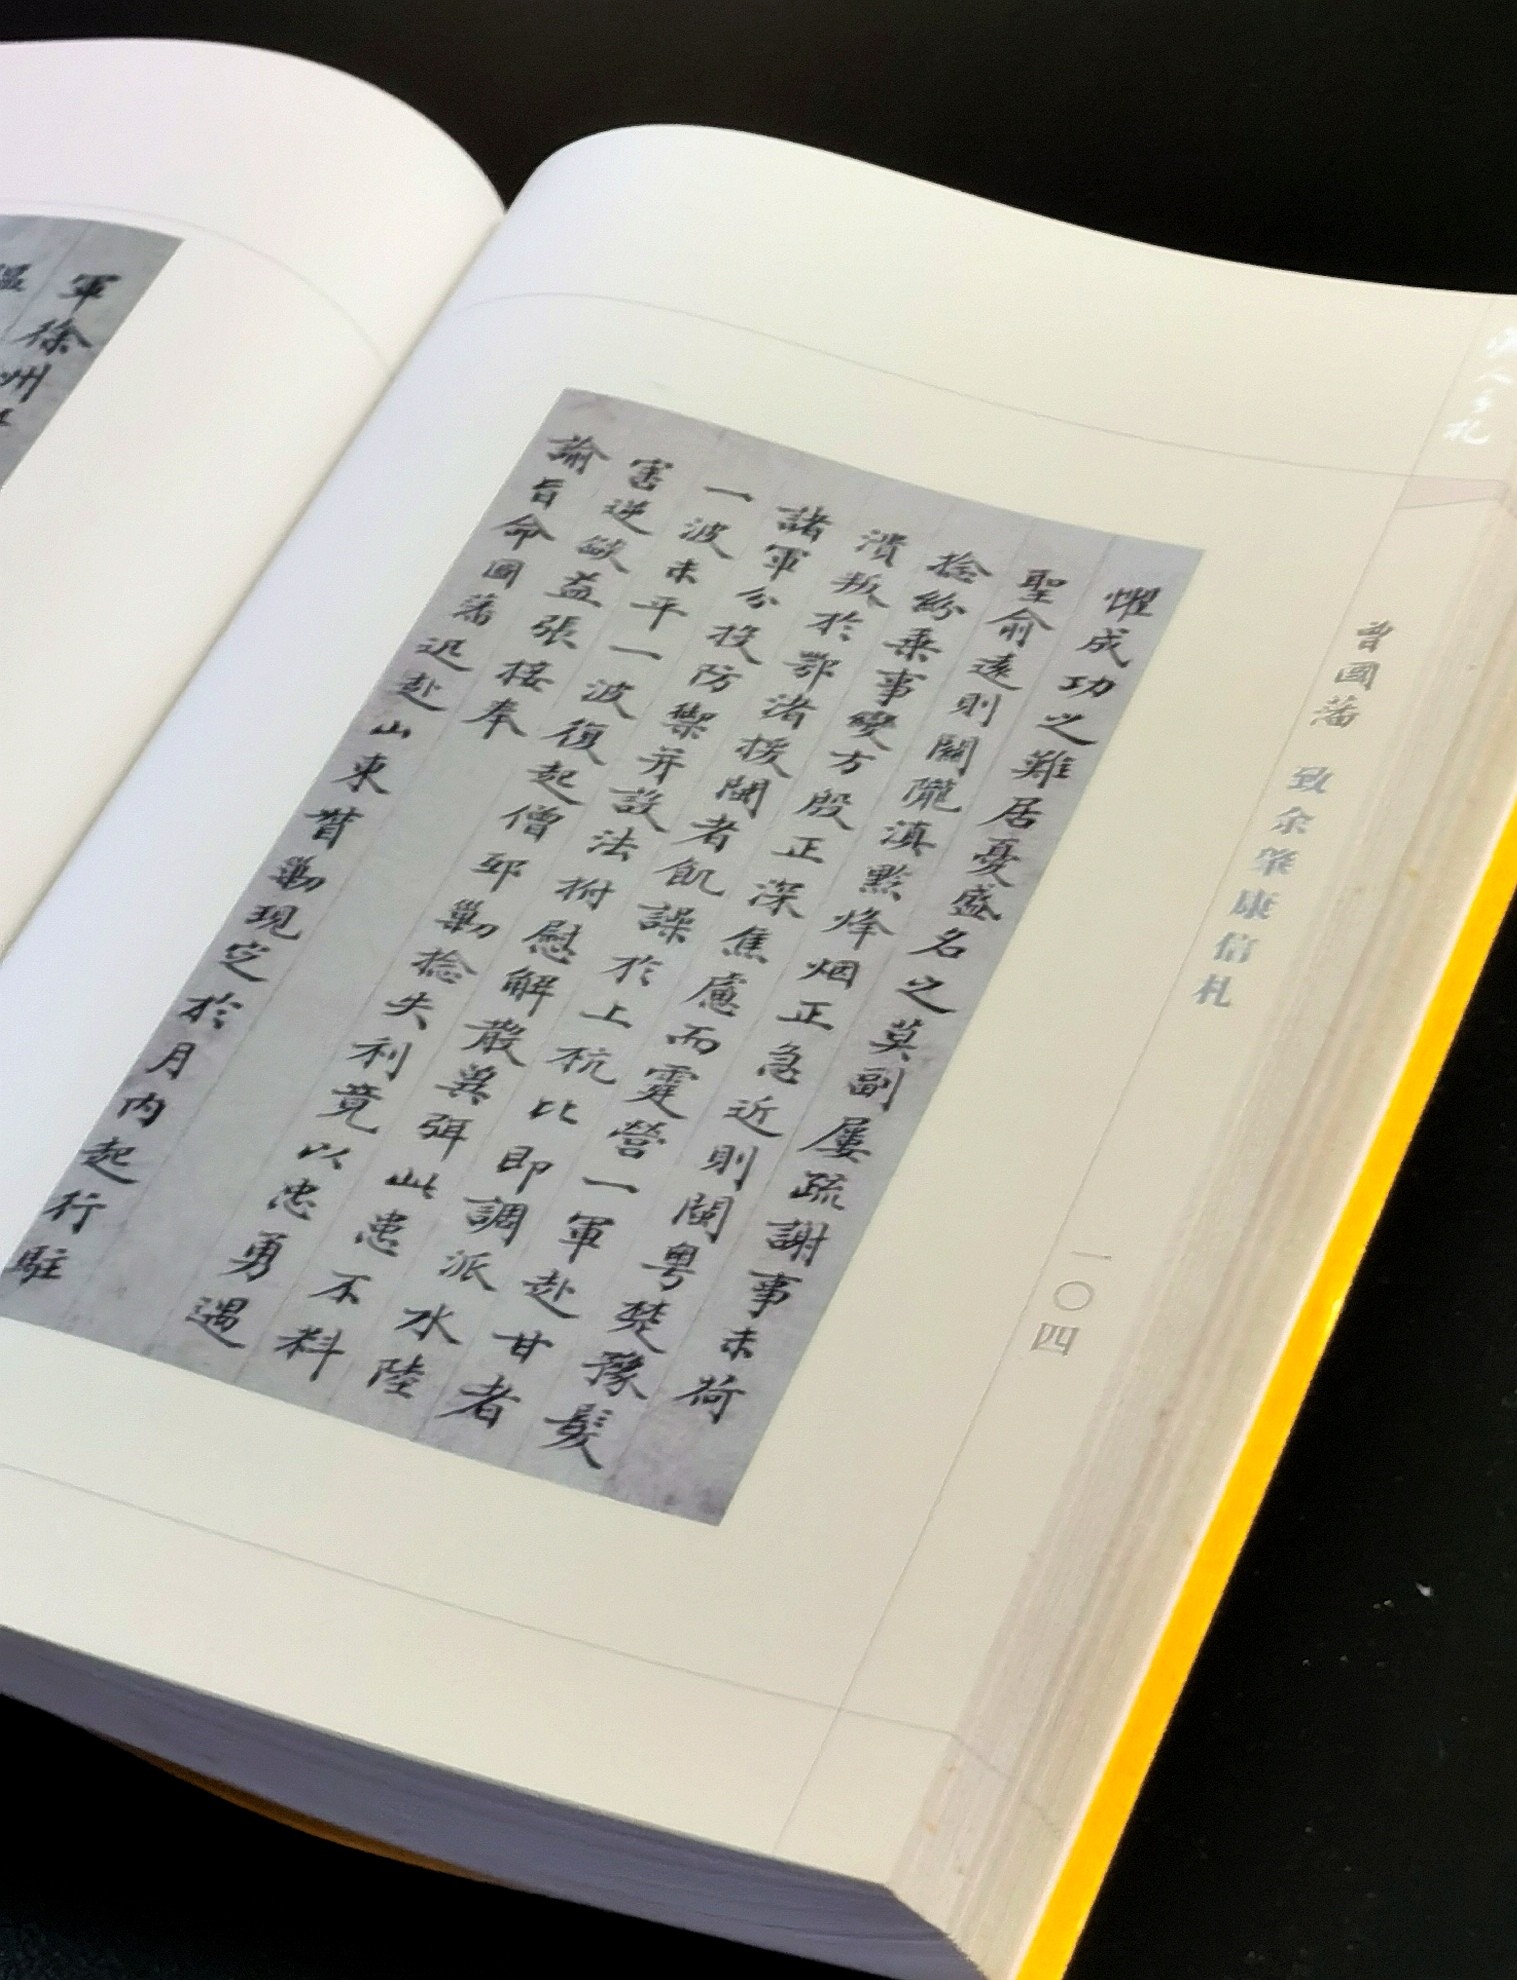 曾國藩 致余肇康信札
一〇四
懼成功之難居憂盛名之莫副屢疏謝事未荷
聖俞遠則關隴滇黔烽烟正急近則閩粵楚豫髮
捻紛乘事變方殷正深焦慮而霆營一軍赴甘者
潰叛於鄂渚援閩者飢譟於上杭比即調派水陸
諸軍分投防禦并設法拊慰解散冀弭此患不料
一波未平一波復起僧邸勦捻失利竟以忠勇遇
害逆燄益張接奉
諭旨命國藩迅赴山東督勦現定於月內起行駐
軍徐州